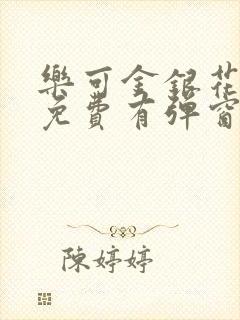 樂可金銀花
免費有彈窗
陳婷婷